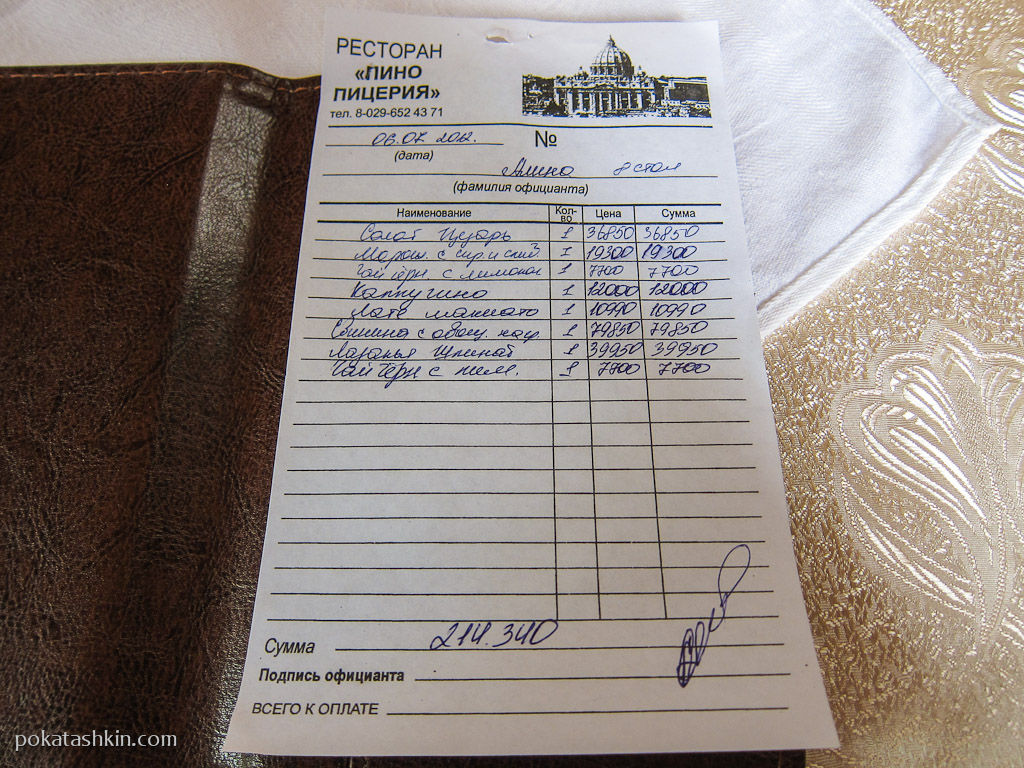 РЕСТОРАН
«ПИНО
ПИЦЕРИЯ»
тел. 8-029-652 43 71
06.07 2012. №
(дата)
Алина 8 стол
(фамилия официанта)
Наименование Кол-во Цена Сумма
Салат Цезарь 1 36850 36850
Морож. с 1 19300 19300
Чай чёрн. с лимоном 1 7700 7700
Каппучино 1 12000 12000
Лате макиато 1 10990 10990
Свинина с овощ. 1 79850 79850
Лазанья шпинат 1 39950 39950
Чай чёрн с лим. 1 7700 7700
Сумма 214.340
Подпись официанта
ВСЕГО К ОПЛАТЕ
pokatashkin.com